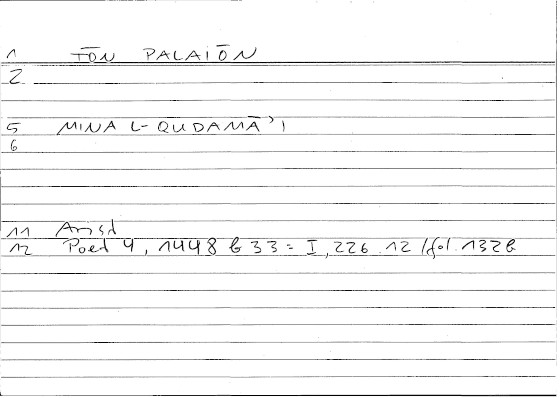 1 TŌN PALAIŌN
2
5 MINA L-QUDAMĀʾI
6
11 Arist
12 Poet 4, 1448 b 33 = I, 226.12 / fol. 132b